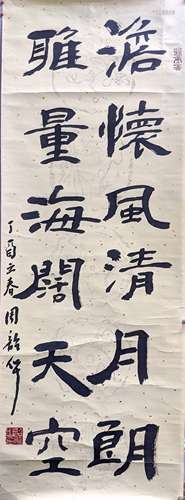 澹懷風清月朗
雅量海闊天空
丁酉之春周韶华